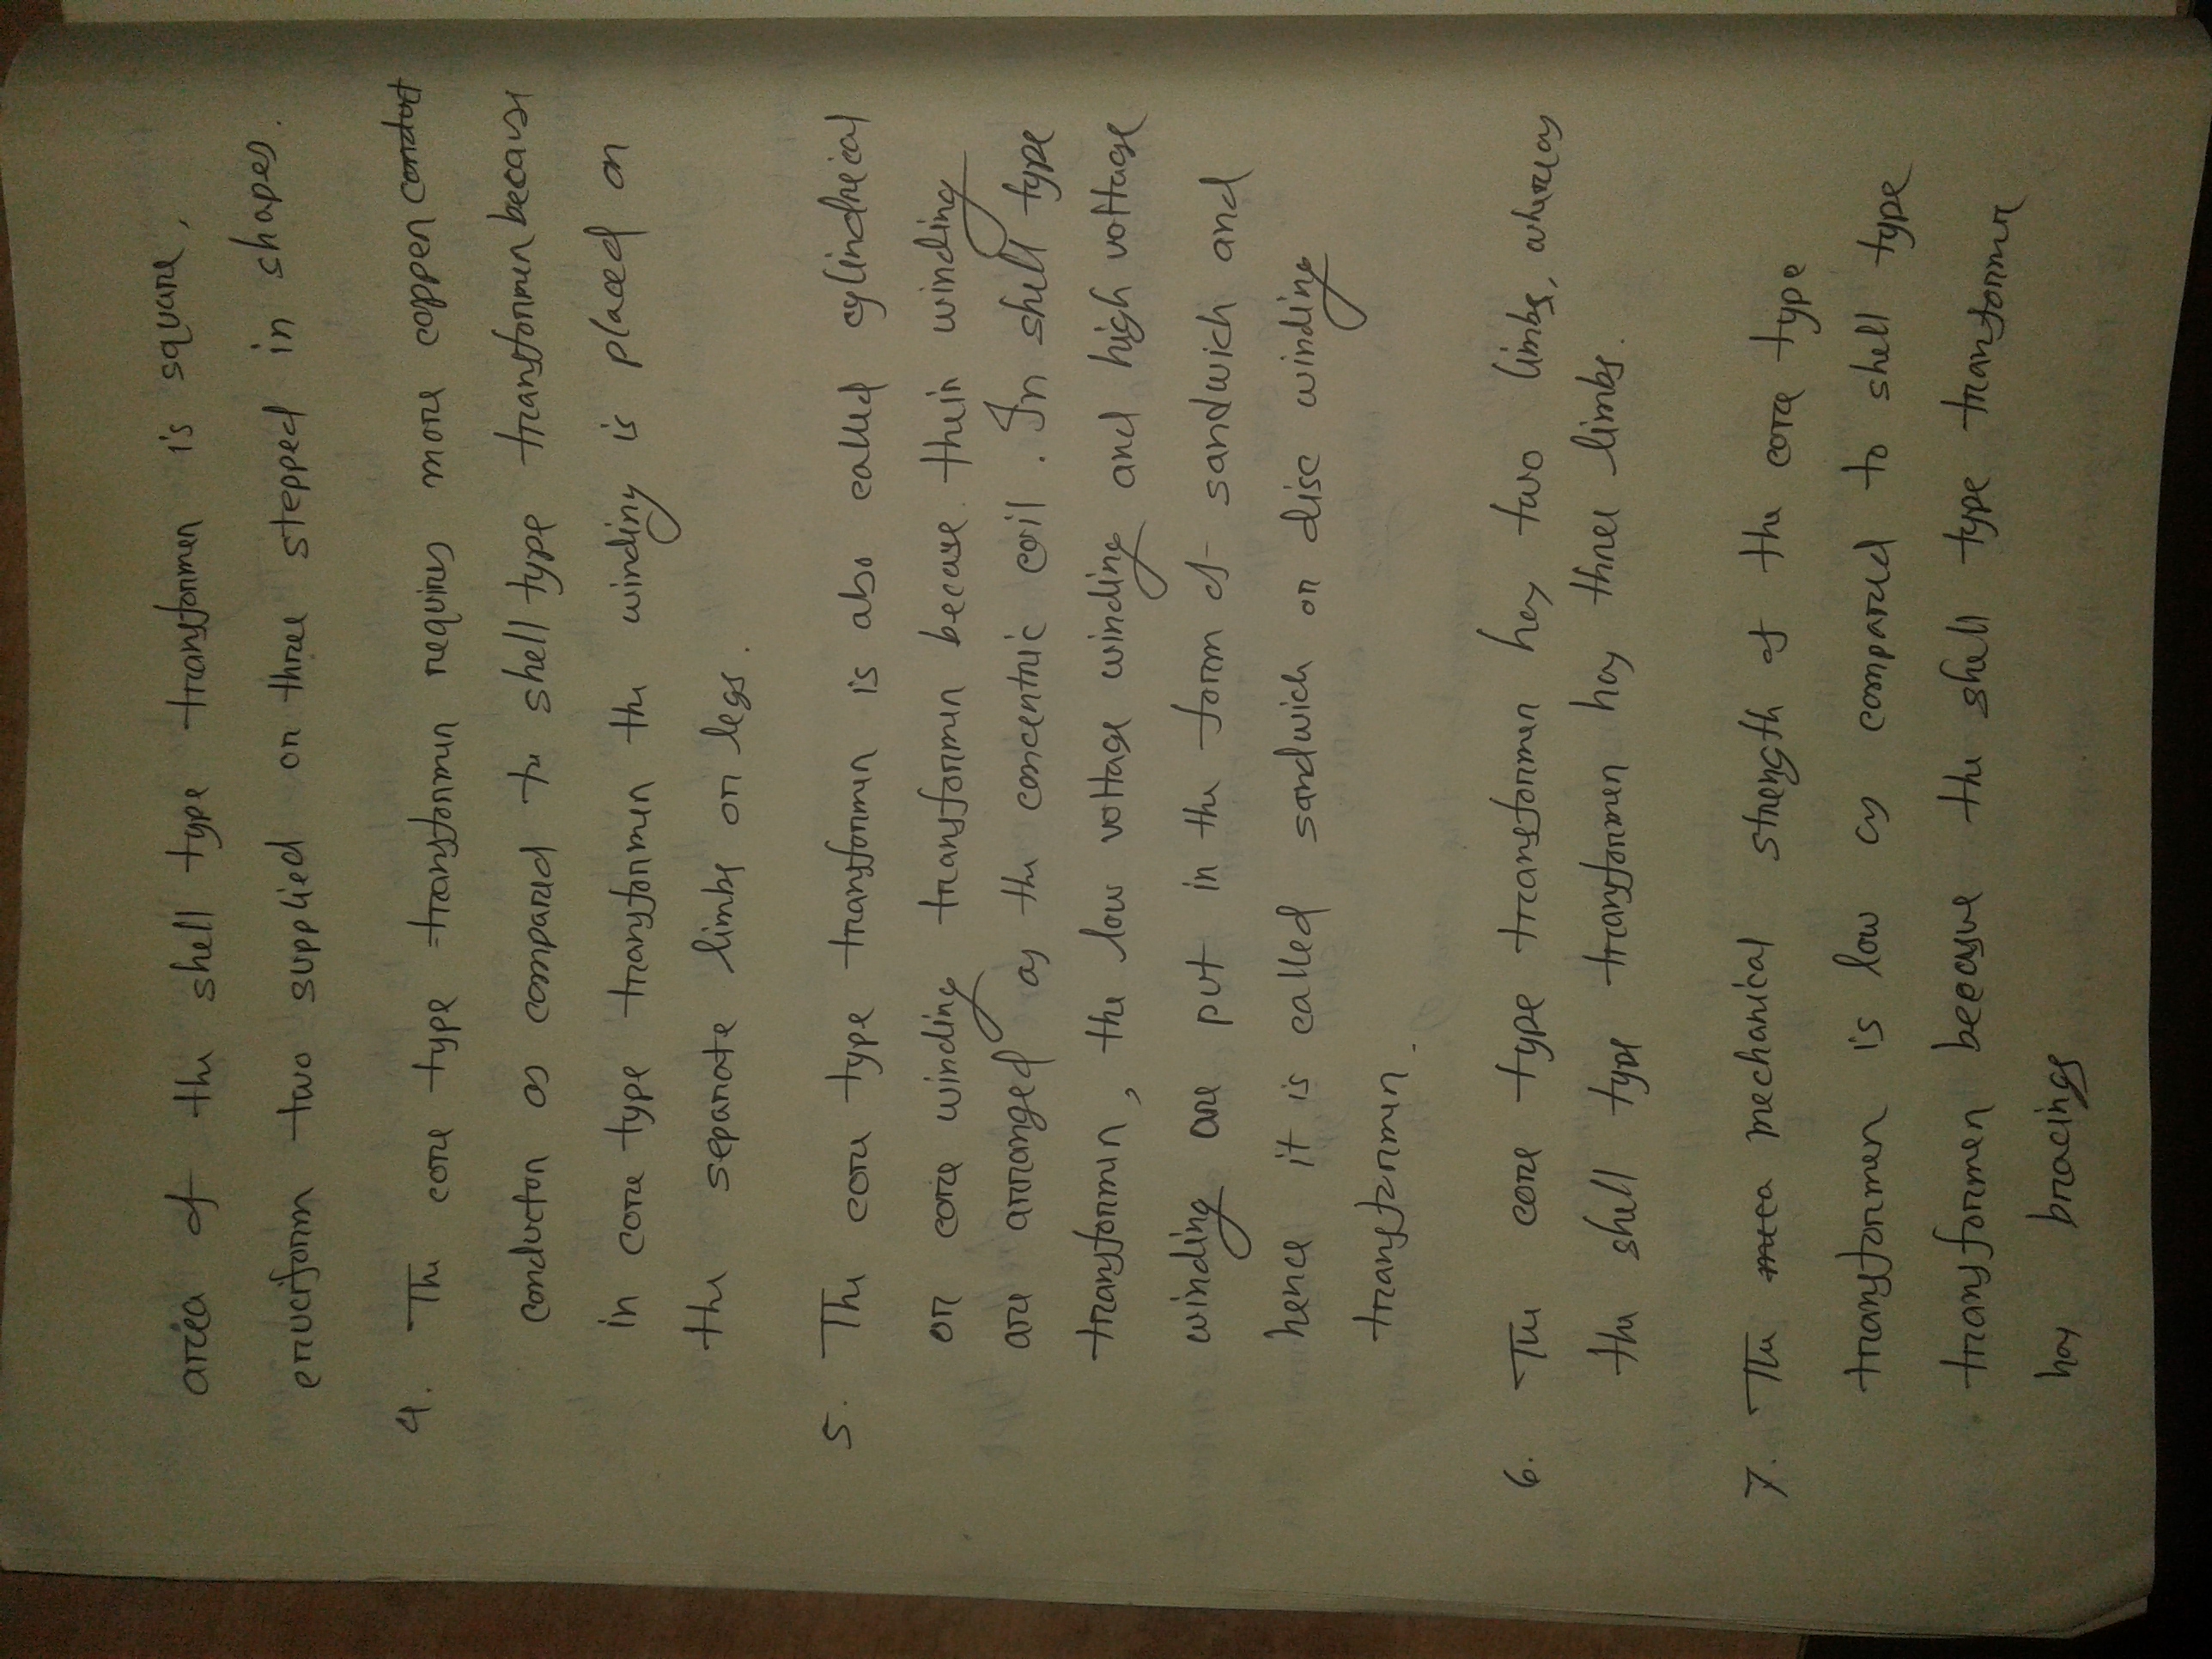 area of the shell type transformer is square,
cruciform two supplied or three stepped in shapes.
4. The core type transformer requires more copper conduct
conductor as compared to shell type transformer because
in core type transformer the winding is placed on
the separate limbs or legs.
5. The core type transformer is also called cylindrical
or core winding transformer because their winding
are arranged as the concentric coil. In shell type
transformer, the low voltage winding and high voltage
winding are put in the form of sandwich and
hence it is called sandwich or disc winding
transformer.
6. The core type transformer has two limbs, whereas
the shell type transformer has three limbs.
7. The meca mechanical strength of the core type
transformer is low as compared to shell type
transformer because the shell type transformer
has bracings